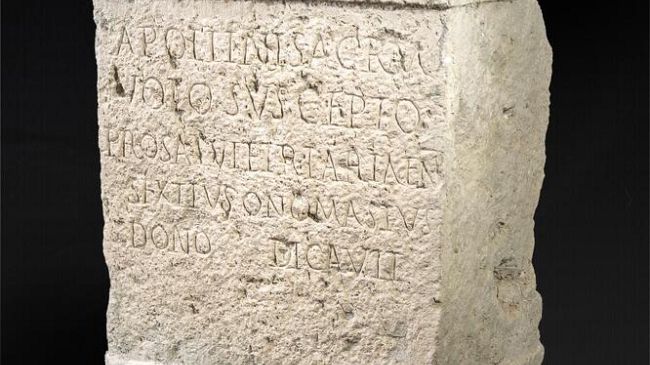 APOLLINI SACRVM
VOTO SVSCEPTO
PRO SALVTE
SEXTIVS ONOMASTVS
DONO DICAVIT